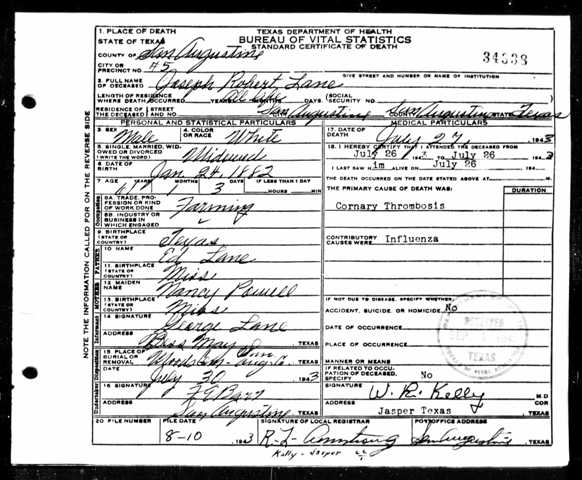 1. PLACE OF DEATH TEXAS DEPARTMENT OF HEALTH
STATE OF TEXAS BUREAU OF VITAL STATISTICS
STANDARD CERTIFICATE OF DEATH
COUNTY OF San Augustine
CITY OR PRECINCT NO. #5 GIVE STREET AND NUMBER OR NAME OF INSTITUTION
2. FULL NAME OF DECEASED Joseph Robert Lane
LENGTH OF RESIDENCE WHERE DEATH OCCURRED YEARS MONTHS DAYS (SOCIAL SECURITY NO.
RESIDENCE OF THE DECEASED STREET AND NO. San Augustine COUNTY San Augustine STATE Texas
PERSONAL AND STATISTICAL PARTICULARS MEDICAL PARTICULARS
3. SEX Male 4. COLOR OR RACE White 17. DATE OF DEATH July 27, 1943
5. SINGLE, MARRIED, WIDOWED OR DIVORCED (WRITE THE WORD) Widowed 18. I HEREBY CERTIFY THAT I ATTENDED THE DECEASED FROM July 26 TO July 26 1943
6. DATE OF BIRTH Jan. 24. 1882 I LAST SAW him ALIVE ON July 26
7. AGE YEARS MONTHS 3 DAYS IF LESS THAN 1 DAY HOURS MIN THE DEATH OCCURRED ON THE DATE STATED ABOVE AT M.
8A. TRADE, PROFESSION OR KIND OF WORK DONE Farming THE PRIMARY CAUSE OF DEATH WAS: DURATION
Cornary Thrombosis
8B. INDUSTRY OR BUSINESS IN WHICH ENGAGED
9. BIRTHPLACE (STATE OR COUNTRY) Texas CONTRIBUTORY CAUSES WERE: Influenza
10. NAME Ed Lane
11. BIRTHPLACE (STATE OR COUNTRY) Miss
12. MAIDEN NAME Nancy Powell
13. BIRTHPLACE (STATE OR COUNTRY) Miss IF NOT DUE TO DISEASE, SPECIFY WHETHER:
ACCIDENT, SUICIDE, OR HOMICIDE No
14. SIGNATURE George Lane DATE OF OCCURRENCE
ADDRESS Bess May, TEXAS PLACE OF OCCURRENCE
15. PLACE OF BURIAL OR REMOVAL TEXAS MANNER OR MEANS
DATE July 30 1943 IF RELATED TO OCCUPATION OF DECEASED, SPECIFY No
16. SIGNATURE SIGNATURE W. R. Kelly M.D.
ADDRESS San Augustine TEXAS ADDRESS Jasper Texas
20 FILE NUMBER FILE DATE 8-10 1943 SIGNATURE OF LOCAL REGISTRAR R. L. Armstrong POSTOFFICE ADDRESS San Augustine, TEXAS
Kelly - Jasper
NOTE THE INFORMATION CALLED FOR ON THE REVERSE SIDE
FATHER
MOTHER
TEXAS